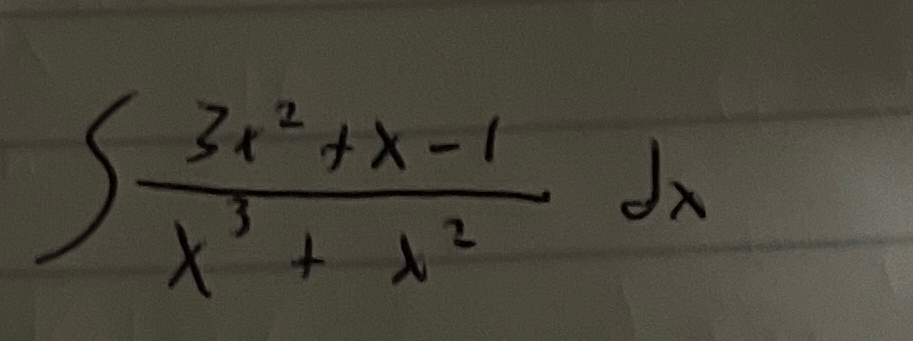 ∫ (3x² + x - 1)/(x³ + x²) dx